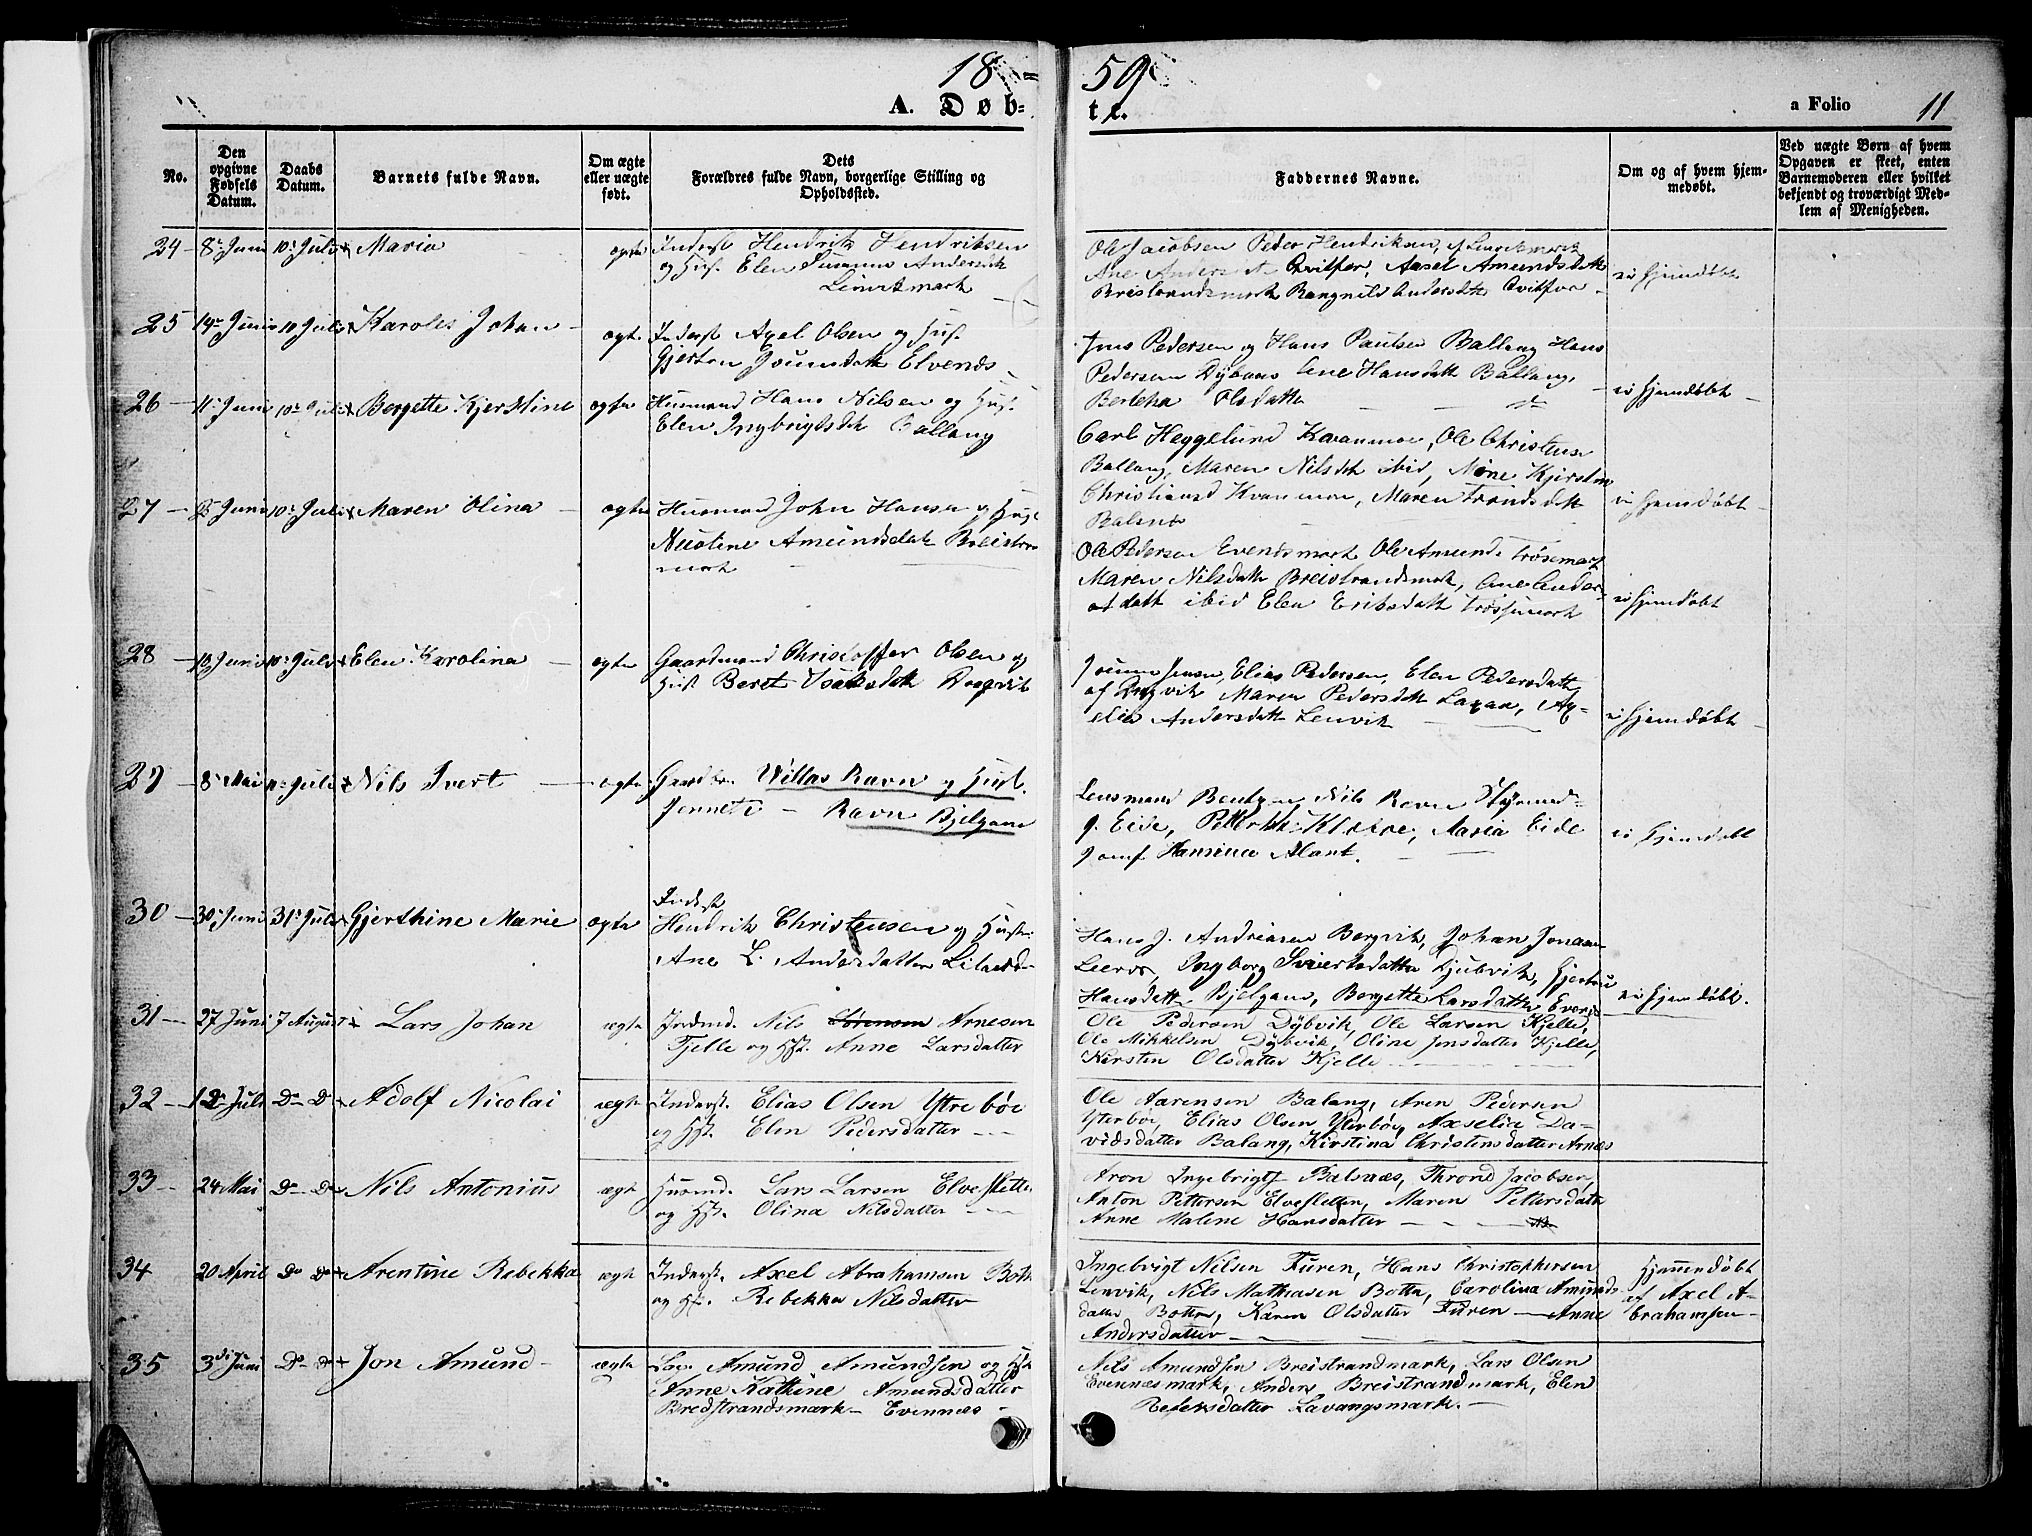 18 59
A. Døbte.
a Folio 11
No.
Den opgivne Fødsels Datum.
Daabs Datum.
Barnets fulde Navn.
Om ægte eller uægte født.
Dets Forældres fulde Navn, borgerlige Stilling og Opholdssted.
Faddernes Navne.
Om og af hvem hjemmedøbt.
Ved uægte Børn af hvem Opgaven er skeet, enten Barnemoderen eller hvilket bekjendt og troværdigt Medlem af Menigheden.
24 8 Juni 10 Juli Maria ægte Inderst Hendrik Hendriksen
og Hust. Elen Susanna Andersdt
Lenvikmark
Ole Jacobsen Peder Hendriksen, af Lenvikmark
Ane Andersdt Qvitfor, Axsel Amundsdt
Breistrandsmark Rangnild Andersdt Qvitfor
ei hjemdøbt
25 14 Juni 10 Juli Karoles Johan ægte Inderst Axel Olsen og Hust.
Gjertru Joumsdt Elvenes
Jens Pedersen og Hans Paulsen Ballang Hans
Pedersen Dybaas Ane Hansdatt Ballang,
Berteha Olsdatter do
ei hjemdøbt
26 11 Juni 10 Juli Bergette Kjerstine ægte Husmand Hans Nilsen og Hust.
Elen Ingbrigtsdt Ballang
Carl Heggelund Kvanmoe, Ole Christens
Ballang, Maren Nilsdt ibid, Mone Kjersten
Christiansd Kvanmoe, Maren Trondsdt
Balsnes
ei hjemdøbt
27 25 Juni 10 Juli Maren Olina ægte Husmand John Hansen og Hust
Nicoline Amundsdatt Breistran
mark
Ole Pedersen Evenesmark Ole Amunds Trøsemark
Maren Nilsdatt Breistrandsmark, Ane Ander-
datt ibid Elen Eriksdatt Trøssemark
ei hjemdøbt
28 19 Juni 10 Juli Elen Karolina ægte Gaardmand Christoffer Olsen og
Hust Beret Isaksdt Dragvik
Joumn Jensen, Elias Pedersen, Elen Pedersdatt
af Dragvik Maren Pedersdatt Laxaa, Ax-
elia Andersdatt Lenvik
ei hjemdøbt
29 8 Mai Juli Nils Ivert ægte Gaardbr. Willas Ravn og Hust.
Jennete Ravn Bjelgam
Lensmand Bentzen, Nils Ravn
J. Eide, Petter Kleive, Maria Eide
Jomf Hansine Alant.
ei hjemdøbt
30 30 Juni 31 Juli Gjerthine Marie ægte Inderst
Hendrik Christensen og Hust.
Ane L. Andersdatter Liland
Hans J. Andreasen Bergvik, Johan Jonasen
Leeros, Ingborg Sivertsdatter Kjubvik, Gjertru
Hansdatt Bjelgam, Bergette Larsdatter Evenes
ei hjemdøbt.
31 27 Juni 7 August Lars Johan ægte Indmd. Nils Sørensen Arnesen
Fjelle og Hst. Anne Larsdatter
Ole Pedersen Dybvik, Ole Larsen Kjelle,
Ole Mikkelsen Dybvik, Oline Jensdatter Kjelle,
Kirsten Olsdatter Kjelle
32 12 Juli Do Do Adolf Nicolai ægte Inderst. Elias Olsen Ytrebøe
og Hst. Elen Pedersdatter
Ole Aarensen Balang, Aren Pedersen
Yterbøe, Elias Olsen Yterbøe, Axselia Da-
vidsdatter Balang, Kirstina Christensdatter Arnes
33 24 Mai Do Do Nils Antonius ægte Husmd. Lars Larsen Elvesletten
og Hst. Olina Nilsdatter
Aron Ingebrigts Balsnæs, Thrond Jacobsen,
Anton Pettersen Elvesletten, Maren Pettersdatt
Anne Malene Hansdatter
34 20 April Do Do Arentine Rebekka ægte Inderst. Axel Abrahamsen Botn
og Hst. Rebekka Nilsdatter
Ingebrigt Nilsen Furen, Hans Christophersen
Lenvik, Nils Mathiasen Botten, Carolina Amunds-
datter Botten, Karen Olsdatter Furen Anne
Andersdatter
Hjemmedøbt
af Axel A-
brahamsen
35 3die Juni Do Do Jon Amund ægte Amund Amundsen og Hst
Anne Kathine Amundsdatter
Bredstrandsmark Evennæs
Nils Amundsen Breistrandmark, Lars Olsen
Evennæsmark, Anders Breistrandmark, Elen
Pedersdatter Lavangsmark.